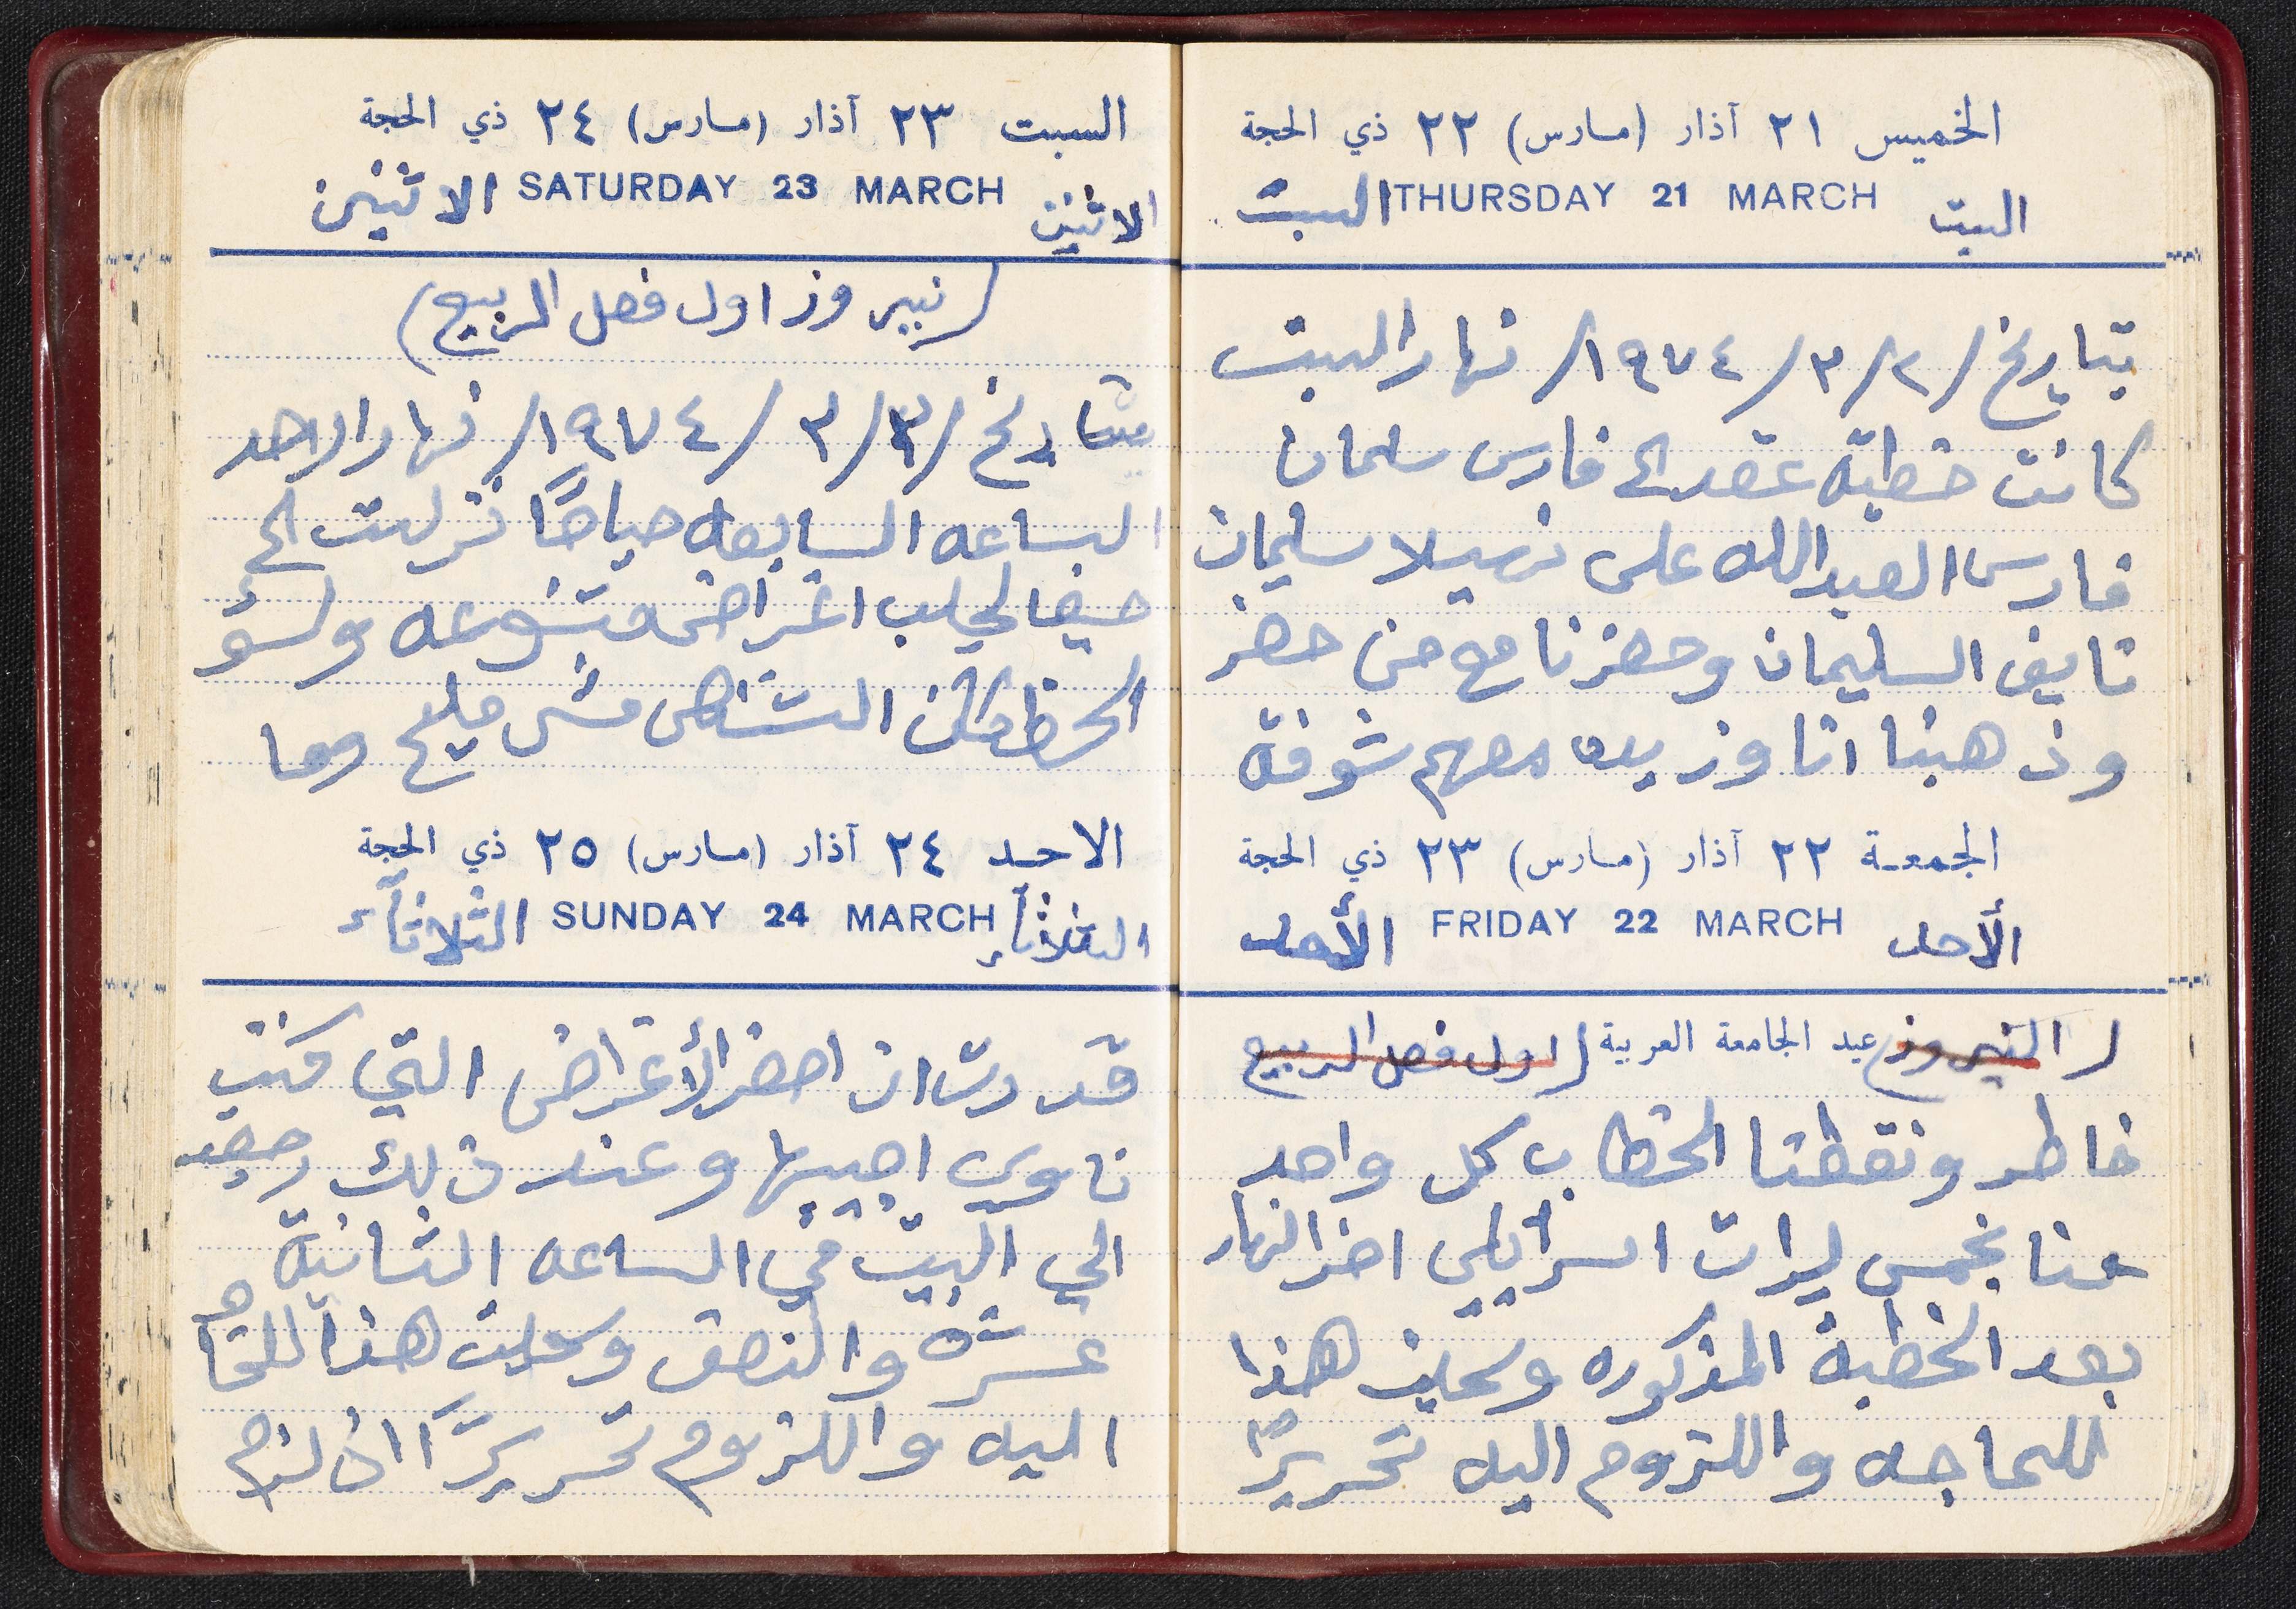 الخميس ٢١ آذار (مارس) ٢٢ ذي الحجة
السبت THURSDAY 21 MARCH السبت
بتاريخ /٢/٣/١٩٧٤/ نهار السبت
كانت خطبة عقد الى فارس سلمان
فارس العبدالله على نهيلا سليمان
نايف السليمان وحضرنا مع من حضر
وذهبنا انا وزيده معهم شوفة
الجمعة ٢٢ آذار (مارس) ٢٣ ذي الحجة
الأحد FRIDAY 22 MARCH الأحد
(النيروز) عيد الجامعة العربية (اول فصل الربيع
خاطر ونقطنا الخطاب كل واحد
منا بخمس ليرات اسرائيلي اخر النهار
بعد الخطبة المذكوره وسجلت هذا
للحاجه واللزوم اليه تحريرًا
السبت ٢٣ آذار (مارس) ٢٤ ذي الحجة
الاثنين SATURDAY 23 MARCH الاثنين
(نيروز اول فصل الربيع)
بتاريخ /٣/٣/١٩٧٤/ نهار الاحد
الساعه السابعه صباحًا نزلت الى
حيفا لجلب اغراض متنوعه ولسؤ
الحظ كان الشنطى مش مليح وما
الاحد ٢٤ آذار (مارس) ٢٥ ذي الحجة
الثلاثاء SUNDAY 24 MARCH الثلاثآء
قدرت ان احضر الأغراض التي كنت
ناوي اجيبها وعند ذلك رجعت
الى البيت في الساعه الثانية
عشره والنصف وسجلت هذا للحاجه
اليه واللزوم تحريرًا اذا لزم